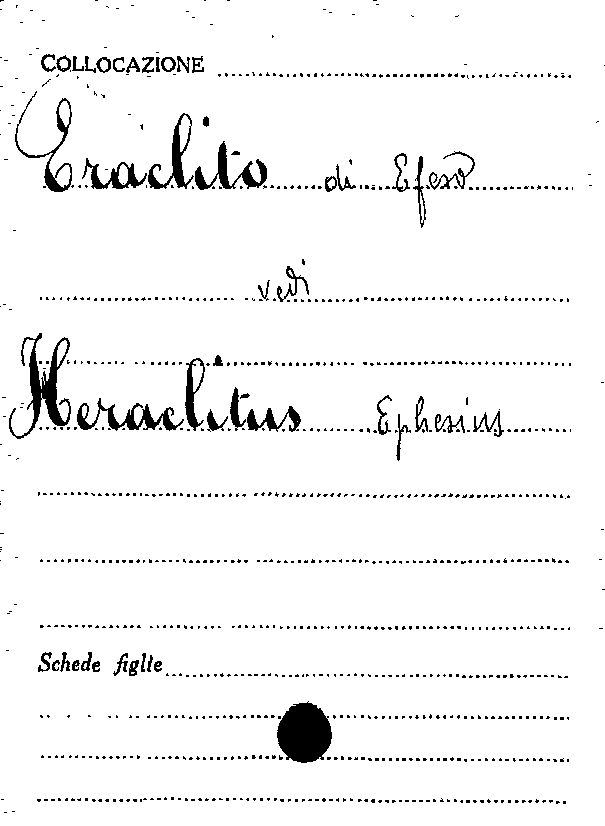 COLLOCAZIONE
Eraclito di Efeso
vedi
Heraclitus Ephesius
Schede figlie